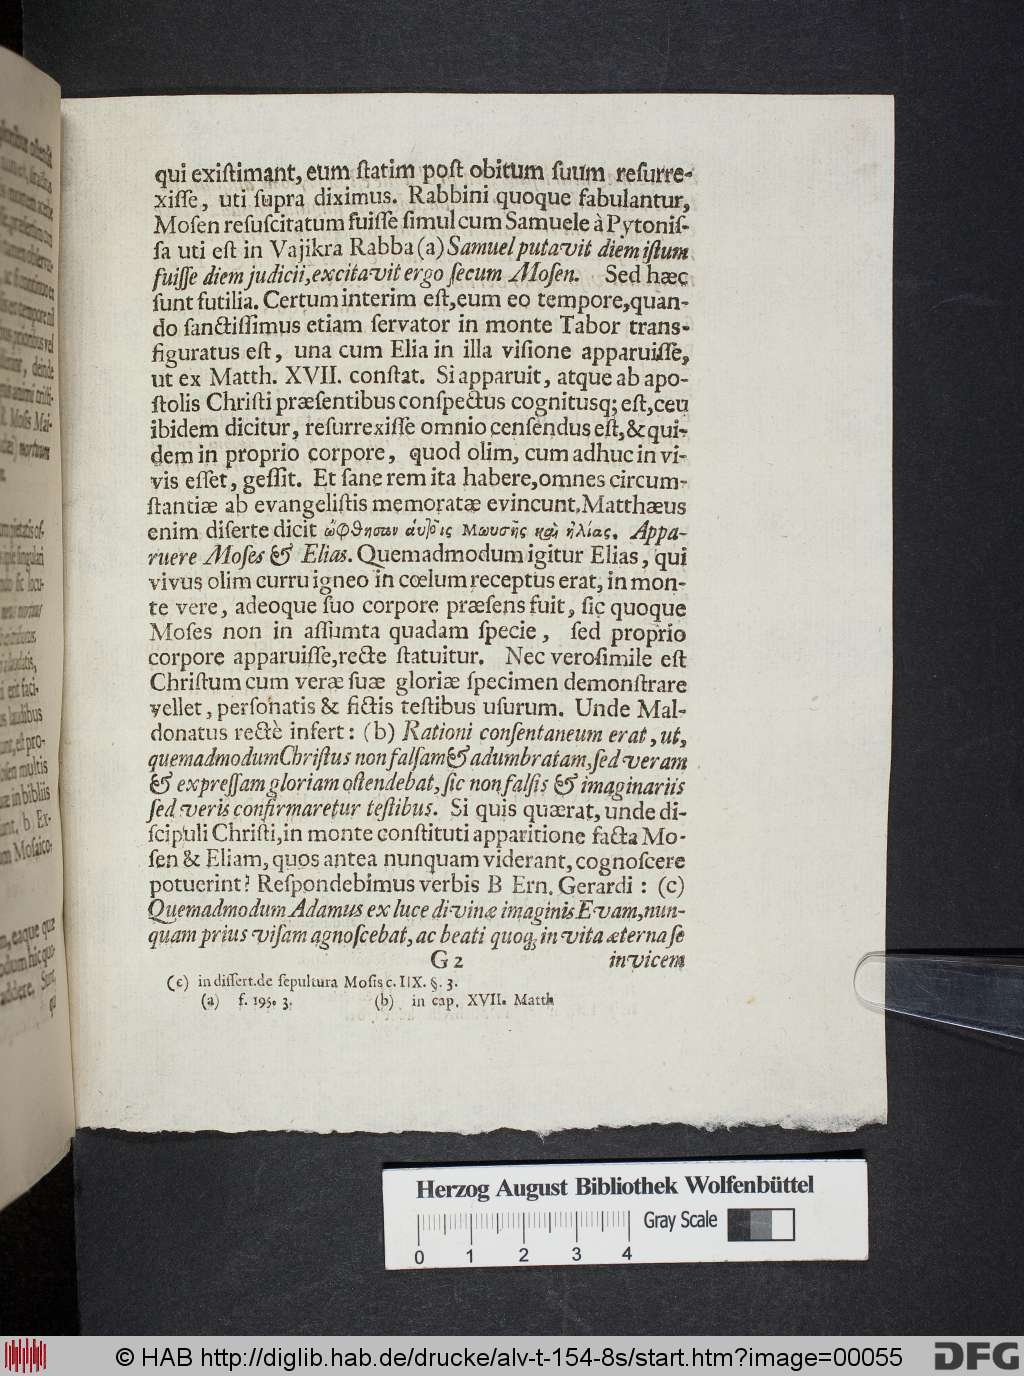 qui exiſtimant, eum ſtatim poſt obitum ſuum reſurre-
xiſſe, uti ſupra diximus. Rabbini quoque fabulantur,
Moſen reſuſcitatum fuiſſe ſimul cum Samuele à Pytoniſ-
ſa uti eſt in Vajikra Rabba (a) Samuel putavit diem iſtum
fuiſſe diem judicii, excitavit ergo ſecum Moſen. Sed hæc
ſunt futilia. Certum interim eſt, eum eo tempore, quan-
do ſanctiſſimus etiam ſervator in monte Tabor trans-
figuratus eſt, una cum Elia in illa viſione apparuiſſe,
ut ex Matth. XVII. conſtat. Si apparuit, atque ab apo-
ſtolis Chriſti præſentibus conſpectus cognitusq; eſt, ceu
ibidem dicitur, reſurrexiſſe omnio cenſendus eſt, & qui-
dem in proprio corpore, quod olim, cum adhuc in vi-
vis eſſet, geſſit. Et ſane rem ita habere, omnes circum-
ſtantiæ ab evangeliſtis memoratæ evincunt. Matthæus
enim diſerte dicit ὤφθησαν αὐτοῖς Μωυσῆς καὶ ἠλίας. Appa-
ruere Moſes & Elias. Quemadmodum igitur Elias, qui
vivus olim curru igneo in cœlum receptus erat, in mon-
te vere, adeoque ſuo corpore præſens fuit, ſic quoque
Moſes non in aſſumta quadam ſpecie, ſed proprio
corpore apparuiſſe, recte ſtatuitur. Nec veroſimile eſt
Chriſtum cum veræ ſuæ gloriæ ſpecimen demonſtrare
vellet, perſonatis & fictis teſtibus uſurum. Unde Mal-
donatus rectè infert: (b) Rationi conſentaneum erat, ut,
quemadmodum Chriſtus non falſam & adumbratam, ſed veram
& expreſſam gloriam oſtendebat, ſic non falſis & imaginariis
ſed veris confirmaretur teſtibus. Si quis quærat, unde di-
ſcipuli Chriſti, in monte conſtituti apparitione facta Mo-
ſen & Eliam, quos antea nunquam viderant, cognoſcere
potuerint? Reſpondebimus verbis B Ern. Gerardi : (c)
Quemadmodum Adamus ex luce divinæ imaginis Evam, nun-
quam prius viſam agnoſcebat, ac beati quoq; in vita æterna ſe
G 2 invicem
(c) in diſſert. de ſepultura Moſis c. IIX. §. 3.
(a) f. 195. 3. (b) in cap. XVII. Matth
Herzog August Bibliothek Wolfenbüttel
Gray Scale
0 1 2 3 4
© HAB http://diglib.hab.de/drucke/alv-t-154-8s/start.htm?image=00055
DFG